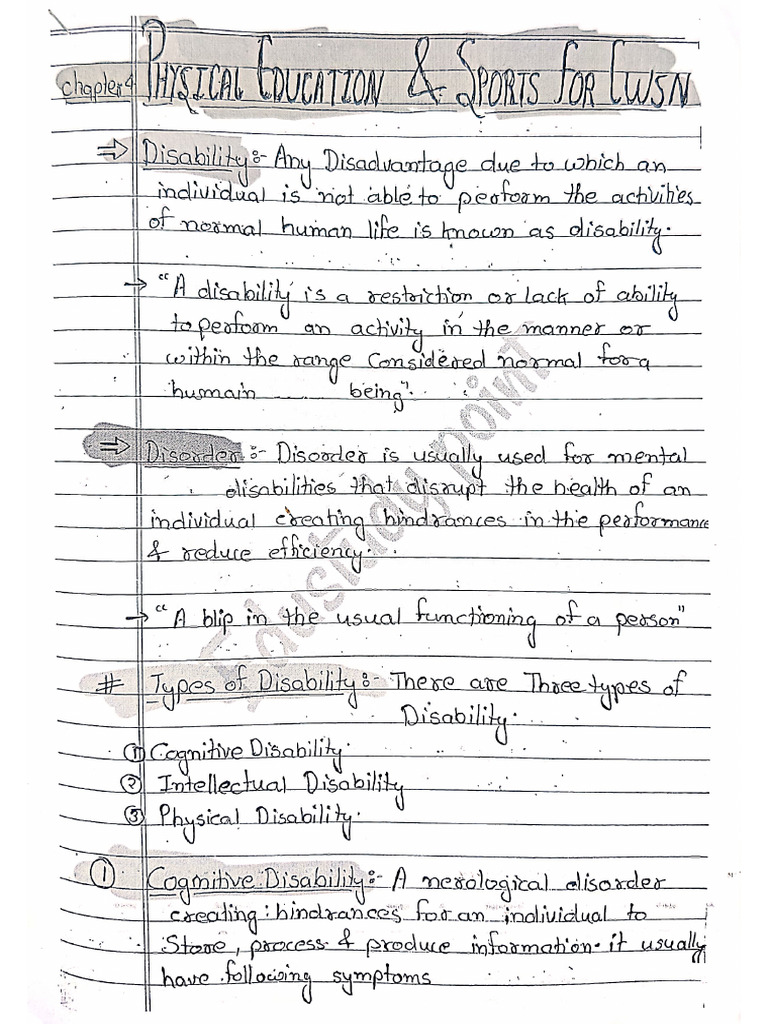 Chapter 4 Physical Education & Sports For CWSN
⇒ Disability:- Any Disadvantage due to which an
individual is not able to perform the activities
of normal human life is known as disability.
→ "A disability is a restriction or lack of ability
to perform an activity in the manner or
within the range Considered normal for a
humain being".
⇒ Disorder:- Disorder is usually used for mental
disabilities that disrupt the health of an
individual creating hindrances in the performance
& reduce efficiency.
→ "A blip in the usual functioning of a person"
# Types of Disability:- There are Three types of
Disability.
① Cognitive Disability.
② Intellectual Disability
③ Physical Disability.
① Cognitive Disability:- A nerological disorder
creating hindrances for an individual to
Store, process & produce information. it usually
have following symptoms
Edustudy point